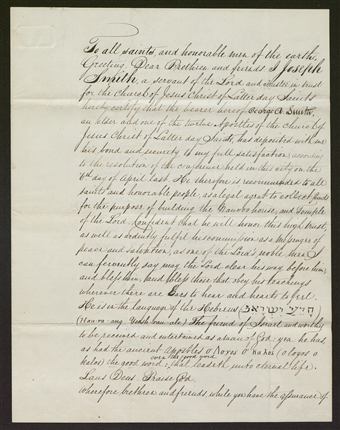 To all saints, and honorable men of the earth,
Greeting, Dear Brethren and friends, I Joseph
Smith, a servant of the Lord and trustee in trust
for the Church of Jesus Christ of Latter day Saints
hereby certify that the bearer hereof George A. Smith,
an elder and one of the twelve Apostles of the church of
Jesus Christ of Latter day Saints, has deposited with me
his bond and security to my full satisfaction, according
to the resolution of the conference held in this city on the
6th day of April last. He therefore is recommended to all
saints and honorable people, as a legal agent to collect funds
for the purpose of building the Nauvoo house, and Temple
of the Lord. Confident that he will honor this high trust,
as well as ardently fulfil his commission as messenger of
peace and salvation; as one of the Lord's noble men, I
can fervently say may the Lord clear his way before him;
and bless him, and bless those that obey his teachings
wherever there are Ears to hear and hearts to feel.
He is in the language of the Hebrews
The friend of Israel and worthy
to be received and entertained as a man of God: yea he has,
as had the ancient apostles ο λογος ο καλος (o logos o
kalos) the good word, that leadeth unto eternal life.
Laus Deus Praise God.
Wherefore, brethren and friends, while you have the assurance of